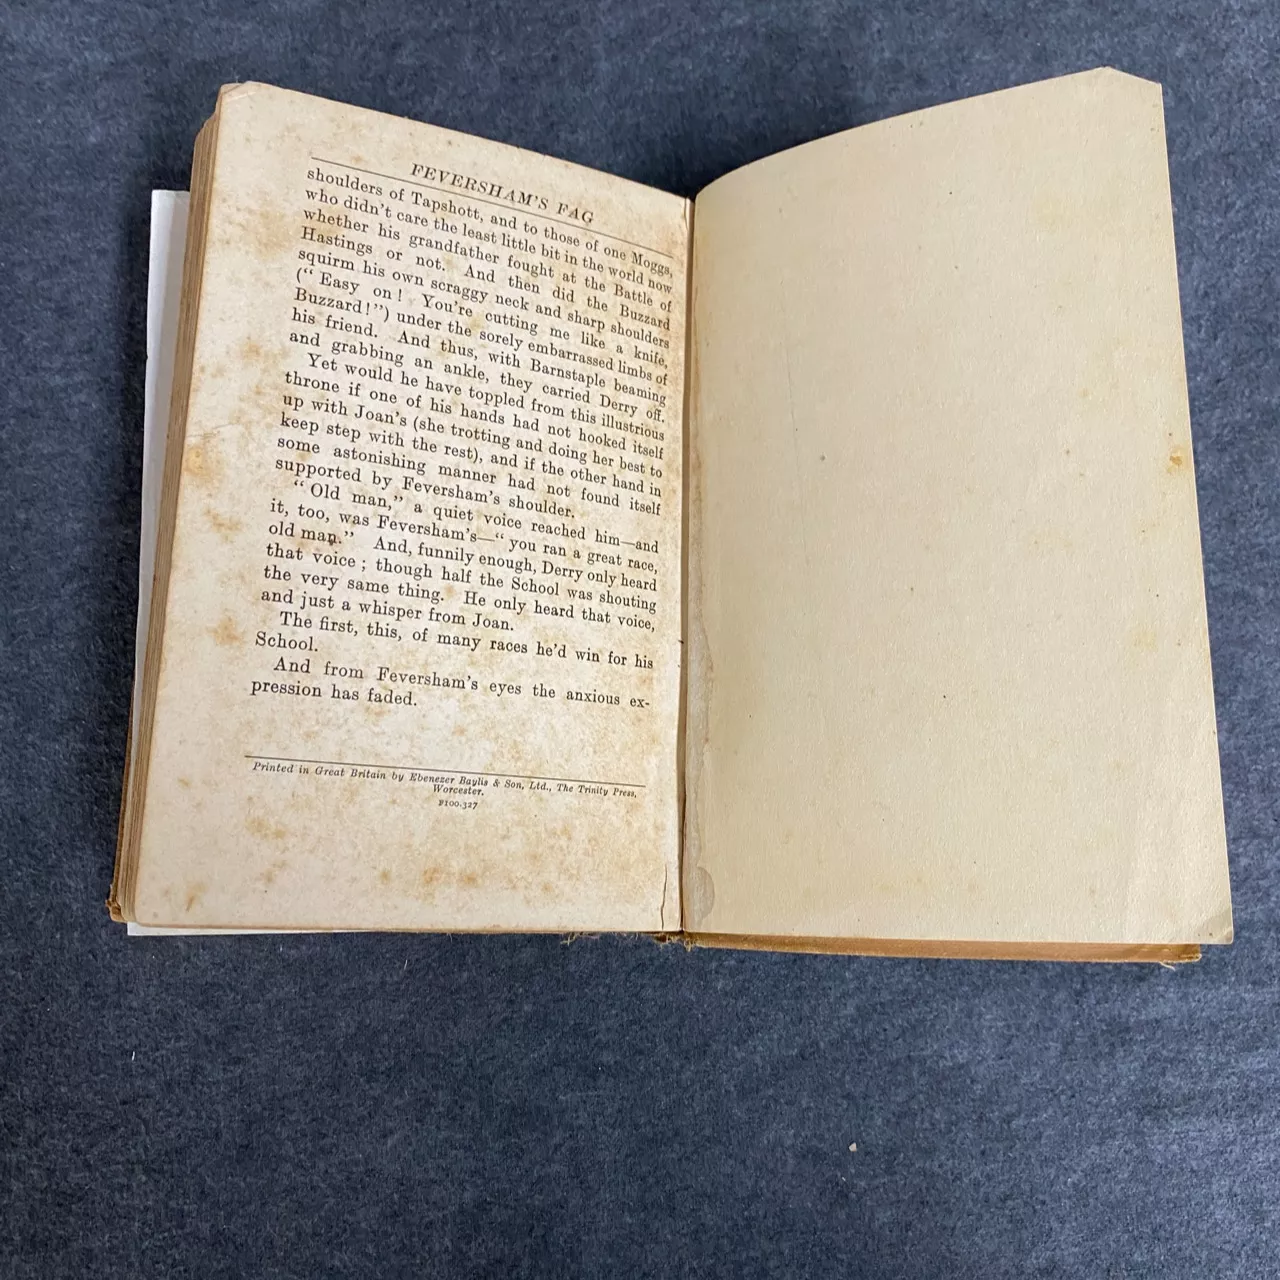 FEVERSHAM'S FAG
shoulders of Tapshott, and to those of one Moggs,
who didn't care the least little bit in the world now
whether his grandfather fought at the Battle of
Hastings or not. And then did the Buzzard
squirm his own scraggy neck and sharp shoulders
(“ Easy on ! You're cutting me like a knife,
Buzzard ! ”) under the sorely embarrassed limbs of
his friend. And thus, with Barnstaple beaming
and grabbing an ankle, they carried Derry off.
Yet would he have toppled from this illustrious
throne if one of his hands had not hooked itself
up with Joan's (she trotting and doing her best to
keep step with the rest), and if the other hand in
some astonishing manner had not found itself
supported by Feversham's shoulder.
“ Old man,” a quiet voice reached him—and
it, too, was Feversham's—“ you ran a great race,
old man.” And, funnily enough, Derry only heard
that voice ; though half the School was shouting
the very same thing. He only heard that voice,
and just a whisper from Joan.
The first, this, of many races he'd win for his
School.
And from Feversham's eyes the anxious ex-
pression has faded.
Printed in Great Britain by Ebenezer Baylis & Son, Ltd., The Trinity Press,
Worcester.
F100.327